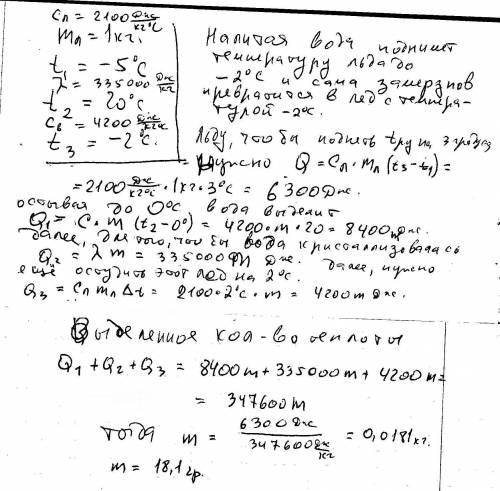 Cл = 2100 Дж/кг°C
mл = 1кг.
t1 = -5°C
λ = 335000 Дж/кг
t2 = 20°C
Cв = 4200 Дж/кг°C
t3 = -2°C.
Налитая вода поднимет
температуру льда до
-2°C и сама замерзнов
превратится в лед с темпера-
турой -2°C.
Льду, чтобы поднять t-ру на 3 градуса
нужно Q = Cл · mл (t3 - t1) =
= 2100 Дж/кг°C · 1кг · 3°C = 6300 Дж.
остывая до 0°C вода выделит
Q1 = C · m (t2 - 0°) = 4200 · m · 20 = 8400m Дж.
далее, для того, что бы вода кристаллизовалась
Q2 = λ m = 335000 m Дж. далее, нужно
ещё остудить этот лед на 2°C.
Q3 = Cл mл Δt = 2100 · 2°C · m = 4200 m Дж.
Выделенное кол-во теплоты
Q1 + Q2 + Q3 = 8400m + 335000m + 4200m =
= 347600m
тогда m = 6300 Дж / 347600 Дж/кг = 0,0181 кг.
m = 18,1 гр.